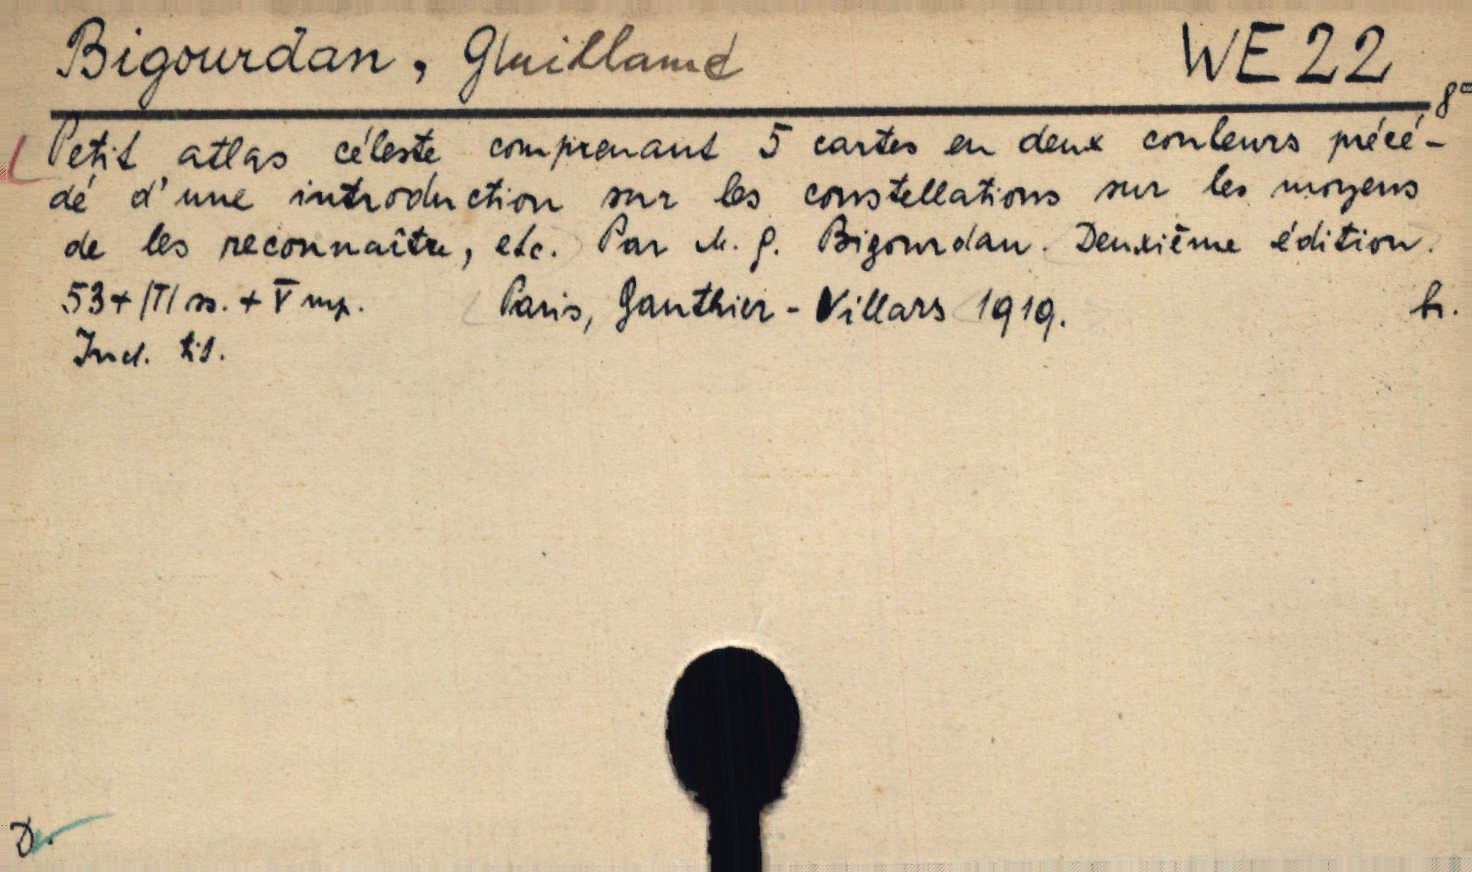 Bigourdan, Guillaume WE 22
8°
Petit atlas céleste comprenant 5 cartes en deux couleurs précé-
dé d'une introduction sur les constellations sur les moyens
de les reconnaître, etc. Par M. G. Bigourdan. Deuxième édition.
53+/T/ ss. + V mp. Paris, Gauthier-Villars 1919. h.
Incl. tit.
D.